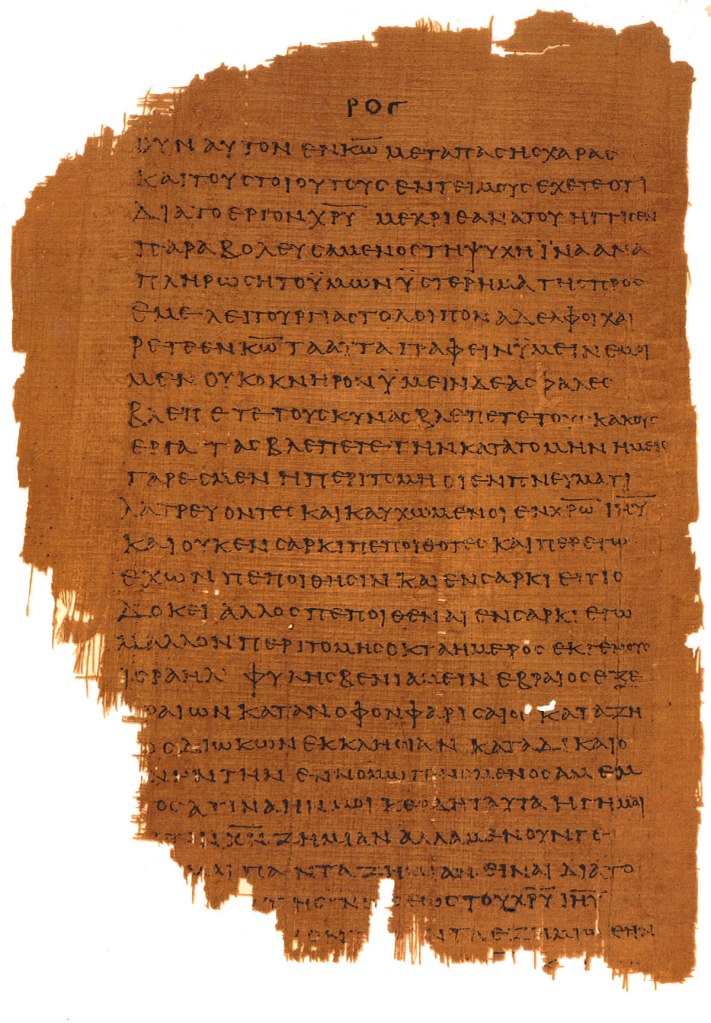 ΡΟΓ
ΟΥΝ ΑΥΤΟΝ ΕΝ Κ̅Ω̅ ΜΕΤΑ ΠΑϹΗϹ ΧΑΡΑϹ
ΚΑΙ ΤΟΥϹ ΤΟΙΟΥΤΟΥϹ ΕΝΤΕΙΜΟΥϹ ΕΧΕΤΕ ΟΤΙ
ΔΙΑ ΤΟ ΕΡΓΟΝ Χ̅Ρ̅Υ̅ ΜΕΧΡΙ ΘΑΝΑΤΟΥ ΗΓΓΙϹΕΝ
ΠΑΡΑΒΟΛΕΥϹΑΜΕΝΟϹ ΤΗ ΨΥΧΗ ΪΝΑ ΑΝΑ
ΠΛΗΡΩϹΗ ΤΟ ΫΜΩΝ ΫϹΤΕΡΗΜΑ ΤΗϹ ΠΡΟϹ
ΕΜΕ ΛΕΙΤΟΥΡΓΙΑϹ ΤΟ ΛΟΙΠΟΝ ΑΔΕΛΦΟΙ ΧΑΙ
ΡΕΤΕ ΕΝ Κ̅Ω̅ ΤΑ ΑΥΤΑ ΓΡΑΦΕΙΝ ΫΜΕΙΝ ΕΜΟΙ
ΜΕΝ ΟΥΚ ΟΚΝΗΡΟΝ ΫΜΕΙΝ ΔΕ ΑϹΦΑΛΕϹ
ΒΛΕΠΕΤΕ ΤΟΥϹ ΚΥΝΑϹ ΒΛΕΠΕΤΕ ΤΟΥϹ ΚΑΚΟΥϹ
ΕΡΓΑΤΑϹ ΒΛΕΠΕΤΕ ΤΗΝ ΚΑΤΑΤΟΜΗΝ ΗΜΕΙϹ
ΓΑΡ ΕϹΜΕΝ Η ΠΕΡΙΤΟΜΗ ΟΙ ΕΝ ΠΝΕΥΜΑΤΙ
ΛΑΤΡΕΥΟΝΤΕϹ ΚΑΙ ΚΑΥΧΩΜΕΝΟΙ ΕΝ Χ̅Ρ̅Ω̅ Ι̅Η̅Υ̅
ΚΑΙ ΟΥΚ ΕΝ ϹΑΡΚΙ ΠΕΠΟΙΘΟΤΕϹ ΚΑΙΠΕΡ ΕΓΩ
ΕΧΩΝ ΠΕΠΟΙΘΗϹΙΝ ΚΑΙ ΕΝ ϹΑΡΚΙ ΕΙ ΤΙϹ
ΔΟΚΕΙ ΑΛΛΟϹ ΠΕΠΟΙΘΕΝΑΙ ΕΝ ϹΑΡΚΙ ΕΓΩ
ΜΑΛΛΟΝ ΠΕΡΙΤΟΜΗϹ ΟΚΤΑΗΜΕΡΟϹ ΕΚ ΓΕΝΟΥϹ
ΙϹΡΑΗΛ ΦΥΛΗϹ ΒΕΝΙΑΜΕΙΝ ΕΒΡΑΙΟϹ ΕΞ Ε
ΒΡΑΙΩΝ ΚΑΤΑ ΝΟΜΟΝ ΦΑΡΙϹΑΙΟϹ ΚΑΤΑ ΖΗ
ΛΟϹ ΔΙΩΚΩΝ ΕΚΚΛΗϹΙΑΝ ΚΑΤΑ ΔΙΚΑΙΟ
ϹΥΝΗΝ ΤΗΝ ΕΝ ΝΟΜΩ ΓΕΝΟΜΕΝΟϹ ΑΜΕΜ
ΠΤΟϹ ΑΤΙΝΑ ΗΝ ΜΟΙ ΚΕΡΔΗ ΤΑΥΤΑ ΗΓΗΜΑΙ
ΔΙΑ ΤΟΝ Χ̅Ρ̅Ν̅ ΖΗΜΙΑΝ ΑΛΛΑ ΜΕΝΟΥΝΓΕ
ΗΓΟΥΜΑΙ ΠΑΝΤΑ ΖΗΜΙΑΝ ΕΙΝΑΙ ΔΙΑ ΤΟ
ΤΗϹ ΓΝΩϹΕΩϹ ΤΟΥ Χ̅Ρ̅Υ̅ Ι̅Η̅Υ̅
ΠΑΝΤΑ ΕΖΗΜΙΩΘΗΝ